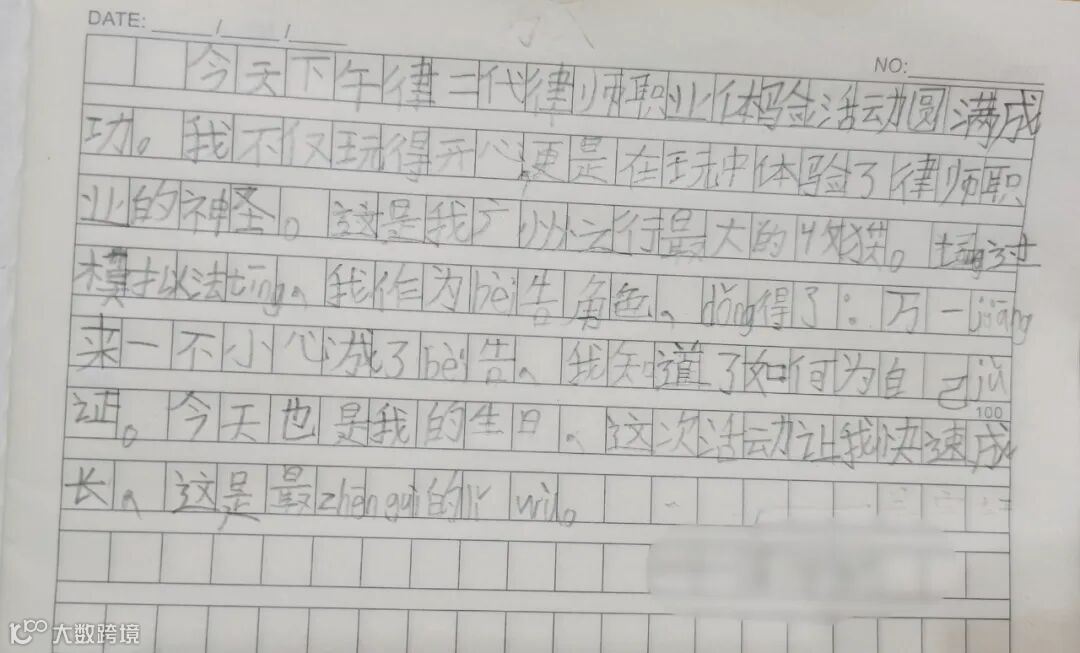 DATE: ____/____/____
NO:
今天下午律二代律师职业体验活动圆满成
功。我不仅玩得开心,更是在玩中体验了律师职
业的神怪。这是我广州之行最大的收获。通过
模拟法tíng、我作为bèi告角色、dǒng得了：万一jiāng
来一不小心成了bèi告、我知道了如何为自己jǔ
100
证。今天也是我的生日、这次活动让我快速成
长、这是最zhēn guì的lǐ wù。
大数跨境